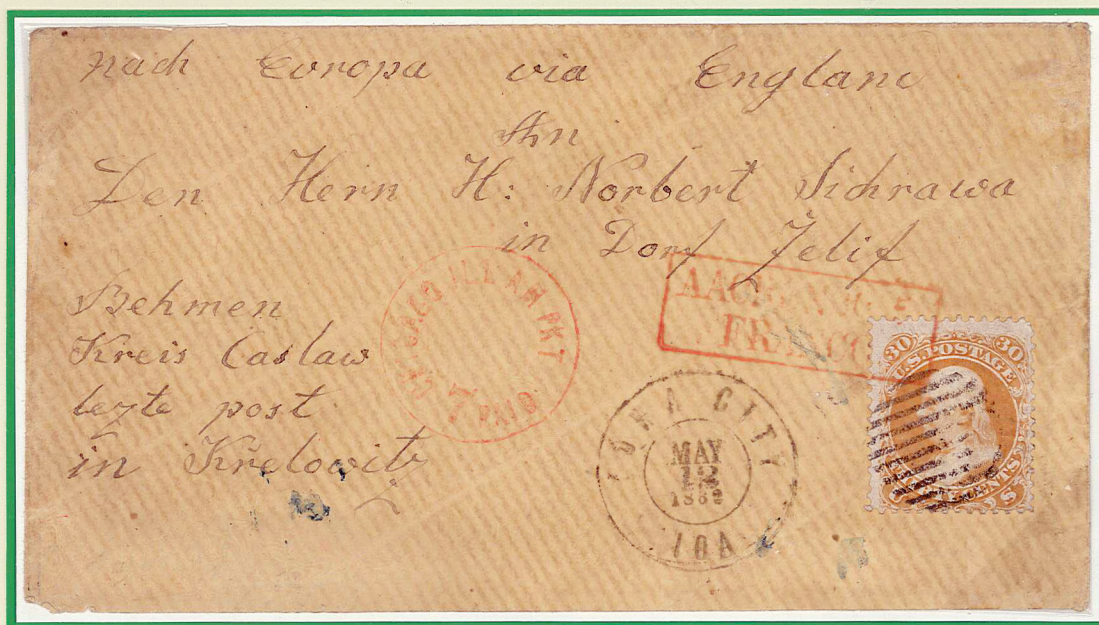 nach Europa via England
An
Den Hern H: Norbert Sichrawa
in Dorf Jelif
Behmen
Kreis Caslaw
lezte post
in Křelowitz
CHICAGO ILL. AM. PKT
PAID
AACHEN
FRANCO
IOWA CITY
MAY
12
IOA
30 30
U.S. POSTAGE
CENTS
U S